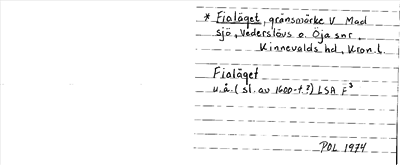 * Fialäget, gränsmärke V Mad
sjö, Vederslövs o. Öja snr,
Kinnevalds hd, Kron. l.
Fialäget
u.å. (sl. av 1600-t.?) LSA F³
POL 1974